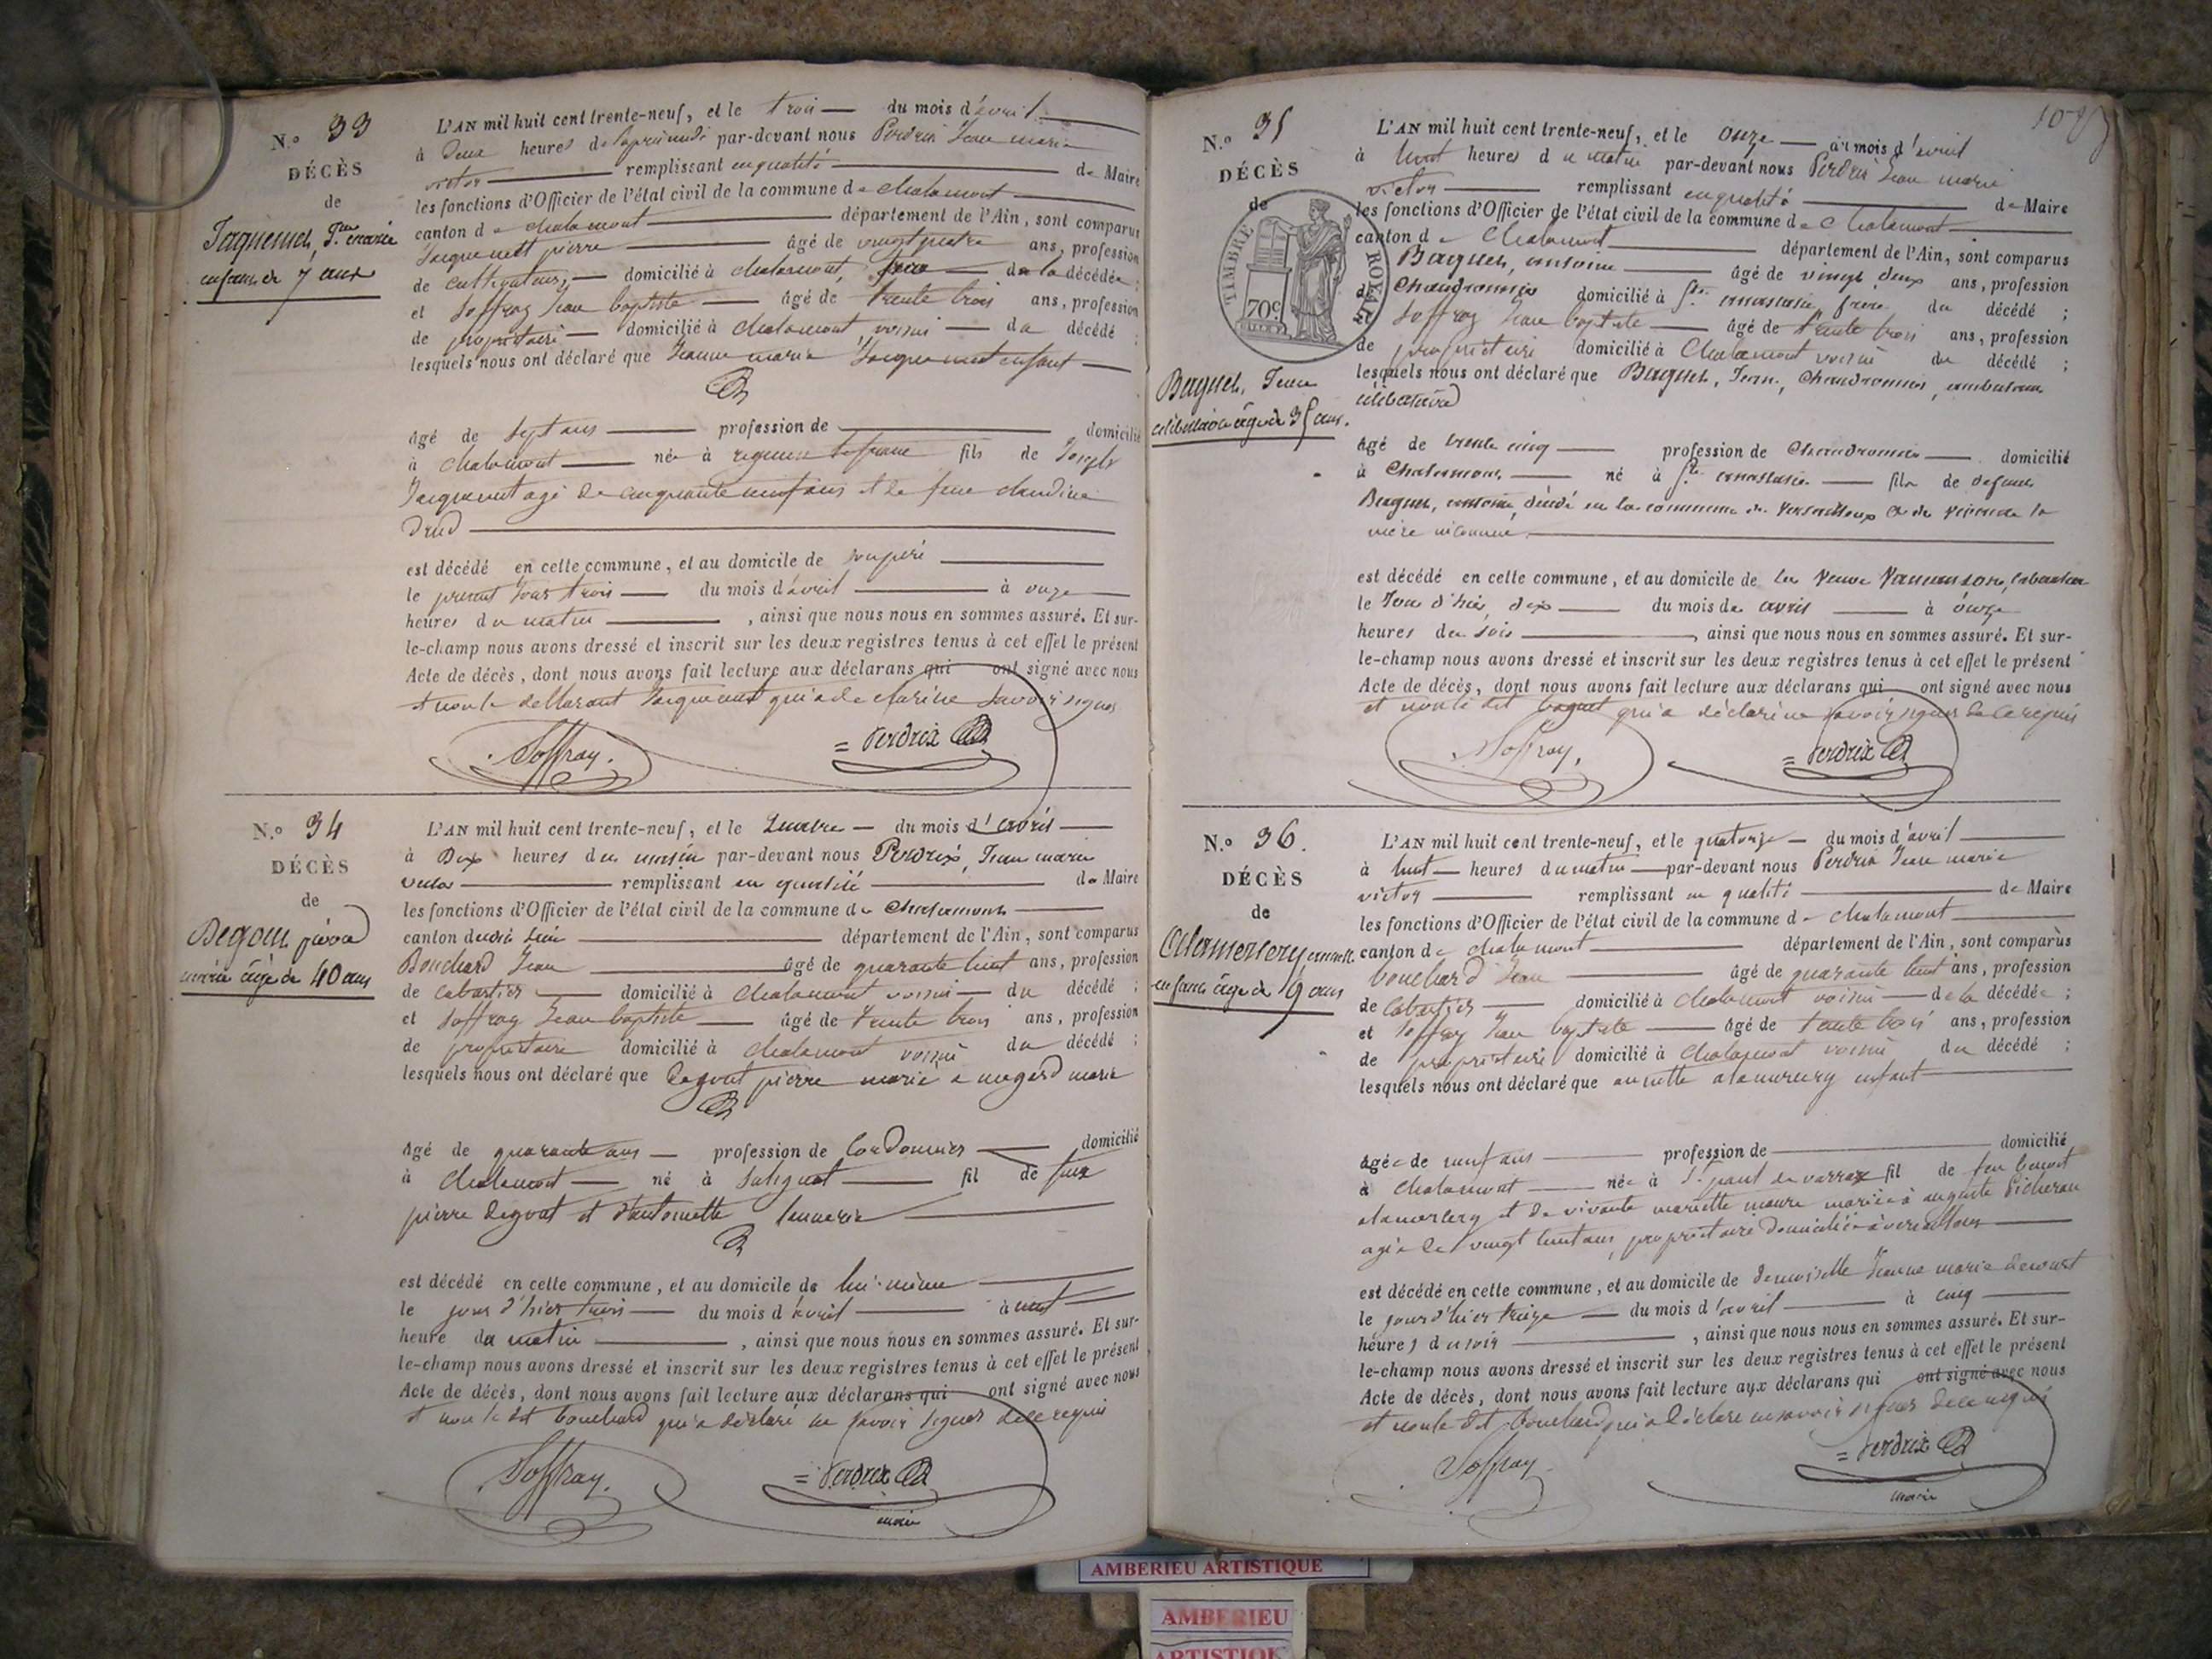 N.° 33
DÉCÈS
de
Jaquemet, J.ne marie
enfant de 7 ans
L'AN mil huit cent trente-neuf, et le trois du mois d'avril
à Deux heures de l'après midi par-devant nous Perdrix Jean marie
victor remplissant en qualité de Maire
les fonctions d'Officier de l'état civil de la commune de chalamont
canton de chalamont département de l'Ain, sont comparus
Jacquemet pierre âgé de vingt quatre ans, profession
de cultivateur domicilié à chalamont, frère de la décédée ;
et Soffray Jean baptiste âgé de trente trois ans, profession
de propriétaire domicilié à chalamont, voisin du décédé ;
lesquels nous ont déclaré que Jeanne marie Jacquemet enfant
âgé de sept ans profession de domicilié
à chalamont née à fils de Joseph
Jacquemet agé de cinquante neuf ans et de feue claudine
Drud
est décédé en cette commune, et au domicile de son père
le présent jour trois du mois d'avril à onze
heures du matin , ainsi que nous nous en sommes assuré. Et sur-
le-champ nous avons dressé et inscrit sur les deux registres tenus à cet effet le présent
Acte de décès, dont nous avons fait lecture aux déclarans qui ont signé avec nous
et non le déclarant Jacquemet qui a déclaré ne savoir signer
Soffray. = Perdrix
N.° 34
DÉCÈS
de
Degout pierre
marié âgé de 40 ans
L'AN mil huit cent trente-neuf, et le quatre du mois d'avril
à Dix heures du matin par-devant nous Perdrix, Jean marie
victor remplissant en qualité de Maire
les fonctions d'Officier de l'état civil de la commune de Chalamont
canton dudit lieu département de l'Ain, sont comparus
Bouchard Jean âgé de quarante huit ans, profession
de cabartier domicilié à chalamont voisin du décédé ;
et Soffray Jean baptiste âgé de trente trois ans, profession
de propriétaire domicilié à chalamont voisin du décédé ;
lesquels nous ont déclaré que Degout pierre marié a marie
âgé de quarante ans profession de Cordonnier domicilié
à chalamont né à fil de feux
pierre Degout et d'antoinette
est décédé en cette commune, et au domicile de lui-même
le jour d'hier trois du mois d'avril à
heure du matin , ainsi que nous nous en sommes assuré. Et sur-
le-champ nous avons dressé et inscrit sur les deux registres tenus à cet effet le présent
Acte de décès, dont nous avons fait lecture aux déclarans qui ont signé avec nous
et non le dit bouchard qui a déclaré ne savoir signer de ce requis
Soffray. = Perdrix
maire
N.° 35
DÉCÈS
de
TIMBRE ROYAL
70c
Baguet, Jean
célibataire âgé de 35 ans.
L'AN mil huit cent trente-neuf, et le onze du mois d'avril
à huit heures du matin par-devant nous Perdrix Jean marie
victor remplissant en qualité de Maire
les fonctions d'Officier de l'état civil de la commune de Chalamont
canton de Chalamont département de l'Ain, sont comparus
Baguet, antoine âgé de vingt deux ans, profession
de Chaudronnier domicilié à St. anastasie frère du décédé ;
et Soffray Jean baptiste âgé de trente trois ans, profession
de propriétaire domicilié à Chalamont voisin du décédé ;
lesquels nous ont déclaré que Baguet, Jean, Chaudronnier, ambulant
célibataire
âgé de trente cinq profession de Chaudronnier domicilié
à Chalamont né à St. anastasie fils de defunt
Baguet, antoine, décédé en la commune de Versailleux et de la
mère inconnue
est décédé en cette commune, et au domicile de la Veuve
le Jour d'hier, dix du mois de avril à onze
heures du soir , ainsi que nous nous en sommes assuré. Et sur-
le-champ nous avons dressé et inscrit sur les deux registres tenus à cet effet le présent
Acte de décès, dont nous avons fait lecture aux déclarans qui ont signé avec nous
et non le dit baguet qui a déclaré ne savoir signer de ce requis
Soffray. = Perdrix
N.° 36.
DÉCÈS
de
Alamercery annette
enfant âgé de 9 ans
L'AN mil huit cent trente-neuf, et le quatorze du mois d'avril
à huit heures du matin par-devant nous Perdrix Jean marie
victor remplissant en qualité de Maire
les fonctions d'Officier de l'état civil de la commune de chalamont
canton de chalamont département de l'Ain, sont comparus
bouchard Jean âgé de quarante huit ans, profession
de Cabartier domicilié à chalamont voisin de la décédée ;
et Soffray Jean baptiste âgé de trente trois ans, profession
de propriétaire domicilié à chalamont voisin du décédé ;
lesquels nous ont déclaré que annette alamercery enfant
âgée de neuf ans profession de domicilié
à chalamont née à St. paul de varrax fil de feu benoit
alamercery et de vivante mariette mariée à auguste Picheran
agée de vingt huit ans, propriétaire domiciliée à versailleux
est décédé en cette commune, et au domicile de demoiselle Jeanne marie
le jour d'hier treize du mois d'avril à cinq
heures du soir , ainsi que nous nous en sommes assuré. Et sur-
le-champ nous avons dressé et inscrit sur les deux registres tenus à cet effet le présent
Acte de décès, dont nous avons fait lecture aux déclarans qui ont signé avec nous
et non le dit bouchard qui a déclaré ne savoir signer de ce requis
Soffray = Perdrix
maire
AMBERIEU ARTISTIQUE
AMBERIEU
ARTISTIQUE